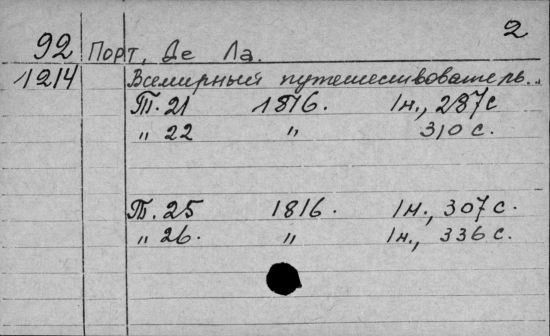 2
92 Порт, Де Ла.
1214 Всемирный путешествователь..
Т. 21 1816. 1н., 287с
„ 22 „ 310 с.
Т. 25 1816. 1н., 307с.
„ 26. „ 1н., 336 с.